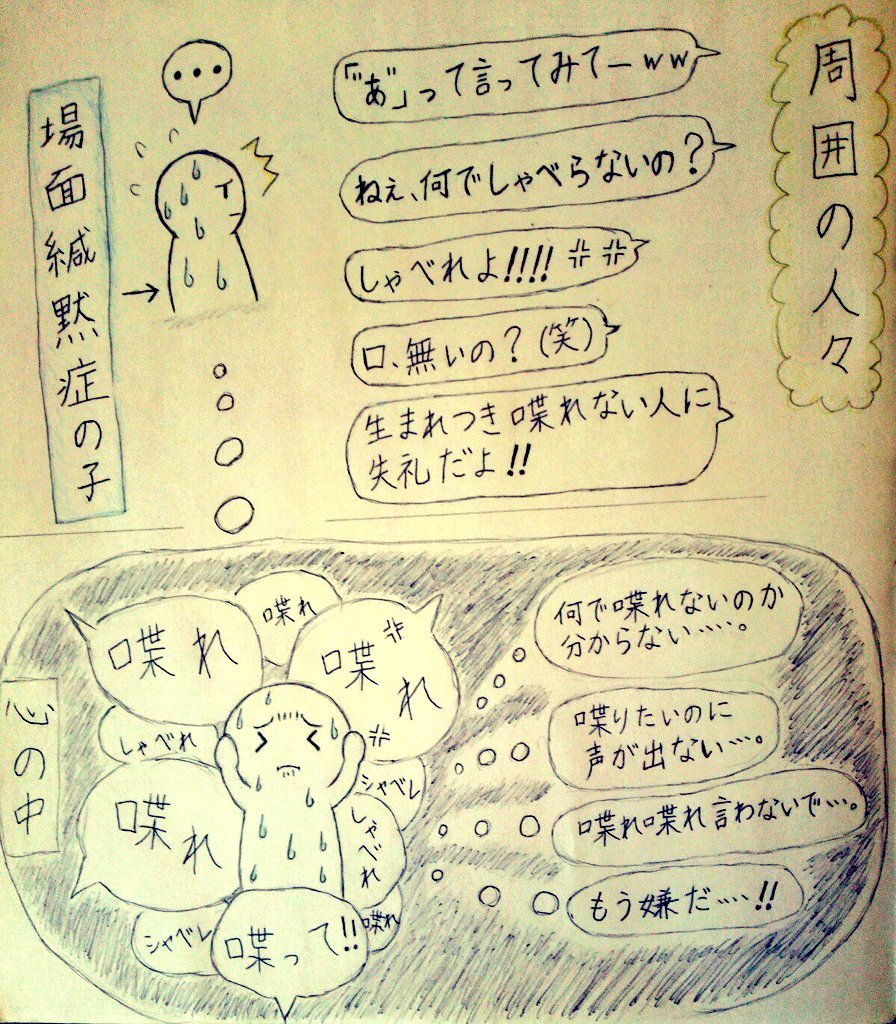 周囲の人々
「"あ"」って言ってみてーww
ねぇ、何でしゃべらないの?
しゃべれよ!!!!
口、無いの?(笑)
生まれつき喋れない人に
失礼だよ!!
...
場面緘黙症の子
心の中
喋れ
喋れ
喋れ
しゃべれ
喋れ
シャベレ
しゃべれ
シャベレ
喋って!!
喋れ
何で喋れないのか
分からない……。
喋りたいのに
声が出ない……。
喋れ喋れ言わないで……。
もう嫌だ……!!